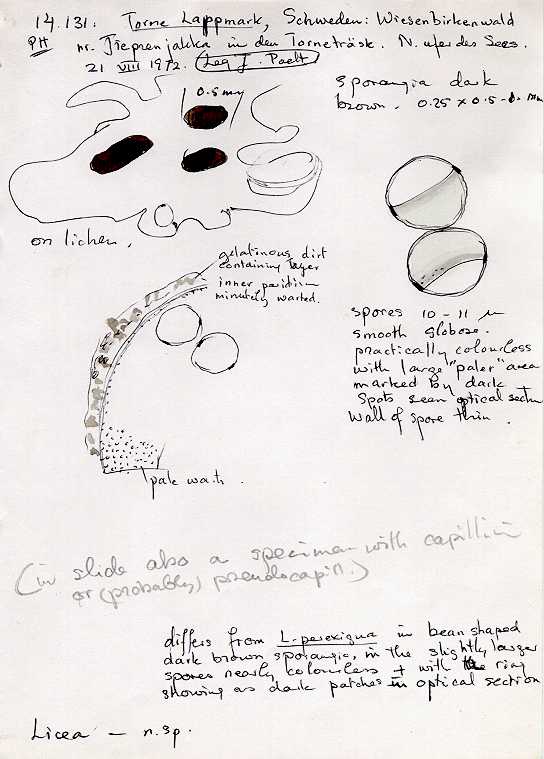 14.131. Torne Lappmark, Schweden: Wiesenbirkenwald
PH nr. Tjieprenjakka in den Torneträsk. N. ufer des Sees.
21 VIII 1972. Leg J. Poelt
0.5 mm
sporangia dark
brown. 0.25 x 0.5 - mm
on lichen.
gelatinous dirt
containing layer
inner peridium
minutely warted.
spores 10-11 μ
smooth globose.
practically colourless
with large "paler" area
marked by dark +
spots seen optical section
Wall of spore thin.
pale warts
(in slide also a specimen with capillitium
or (probably) pseudocapill.)
differs from L. perexigua in bean shaped
dark brown sporangia, in the slightly larger
spores nearly colourless + with the ring
showing as dark patches in optical section
Licea — n.sp.